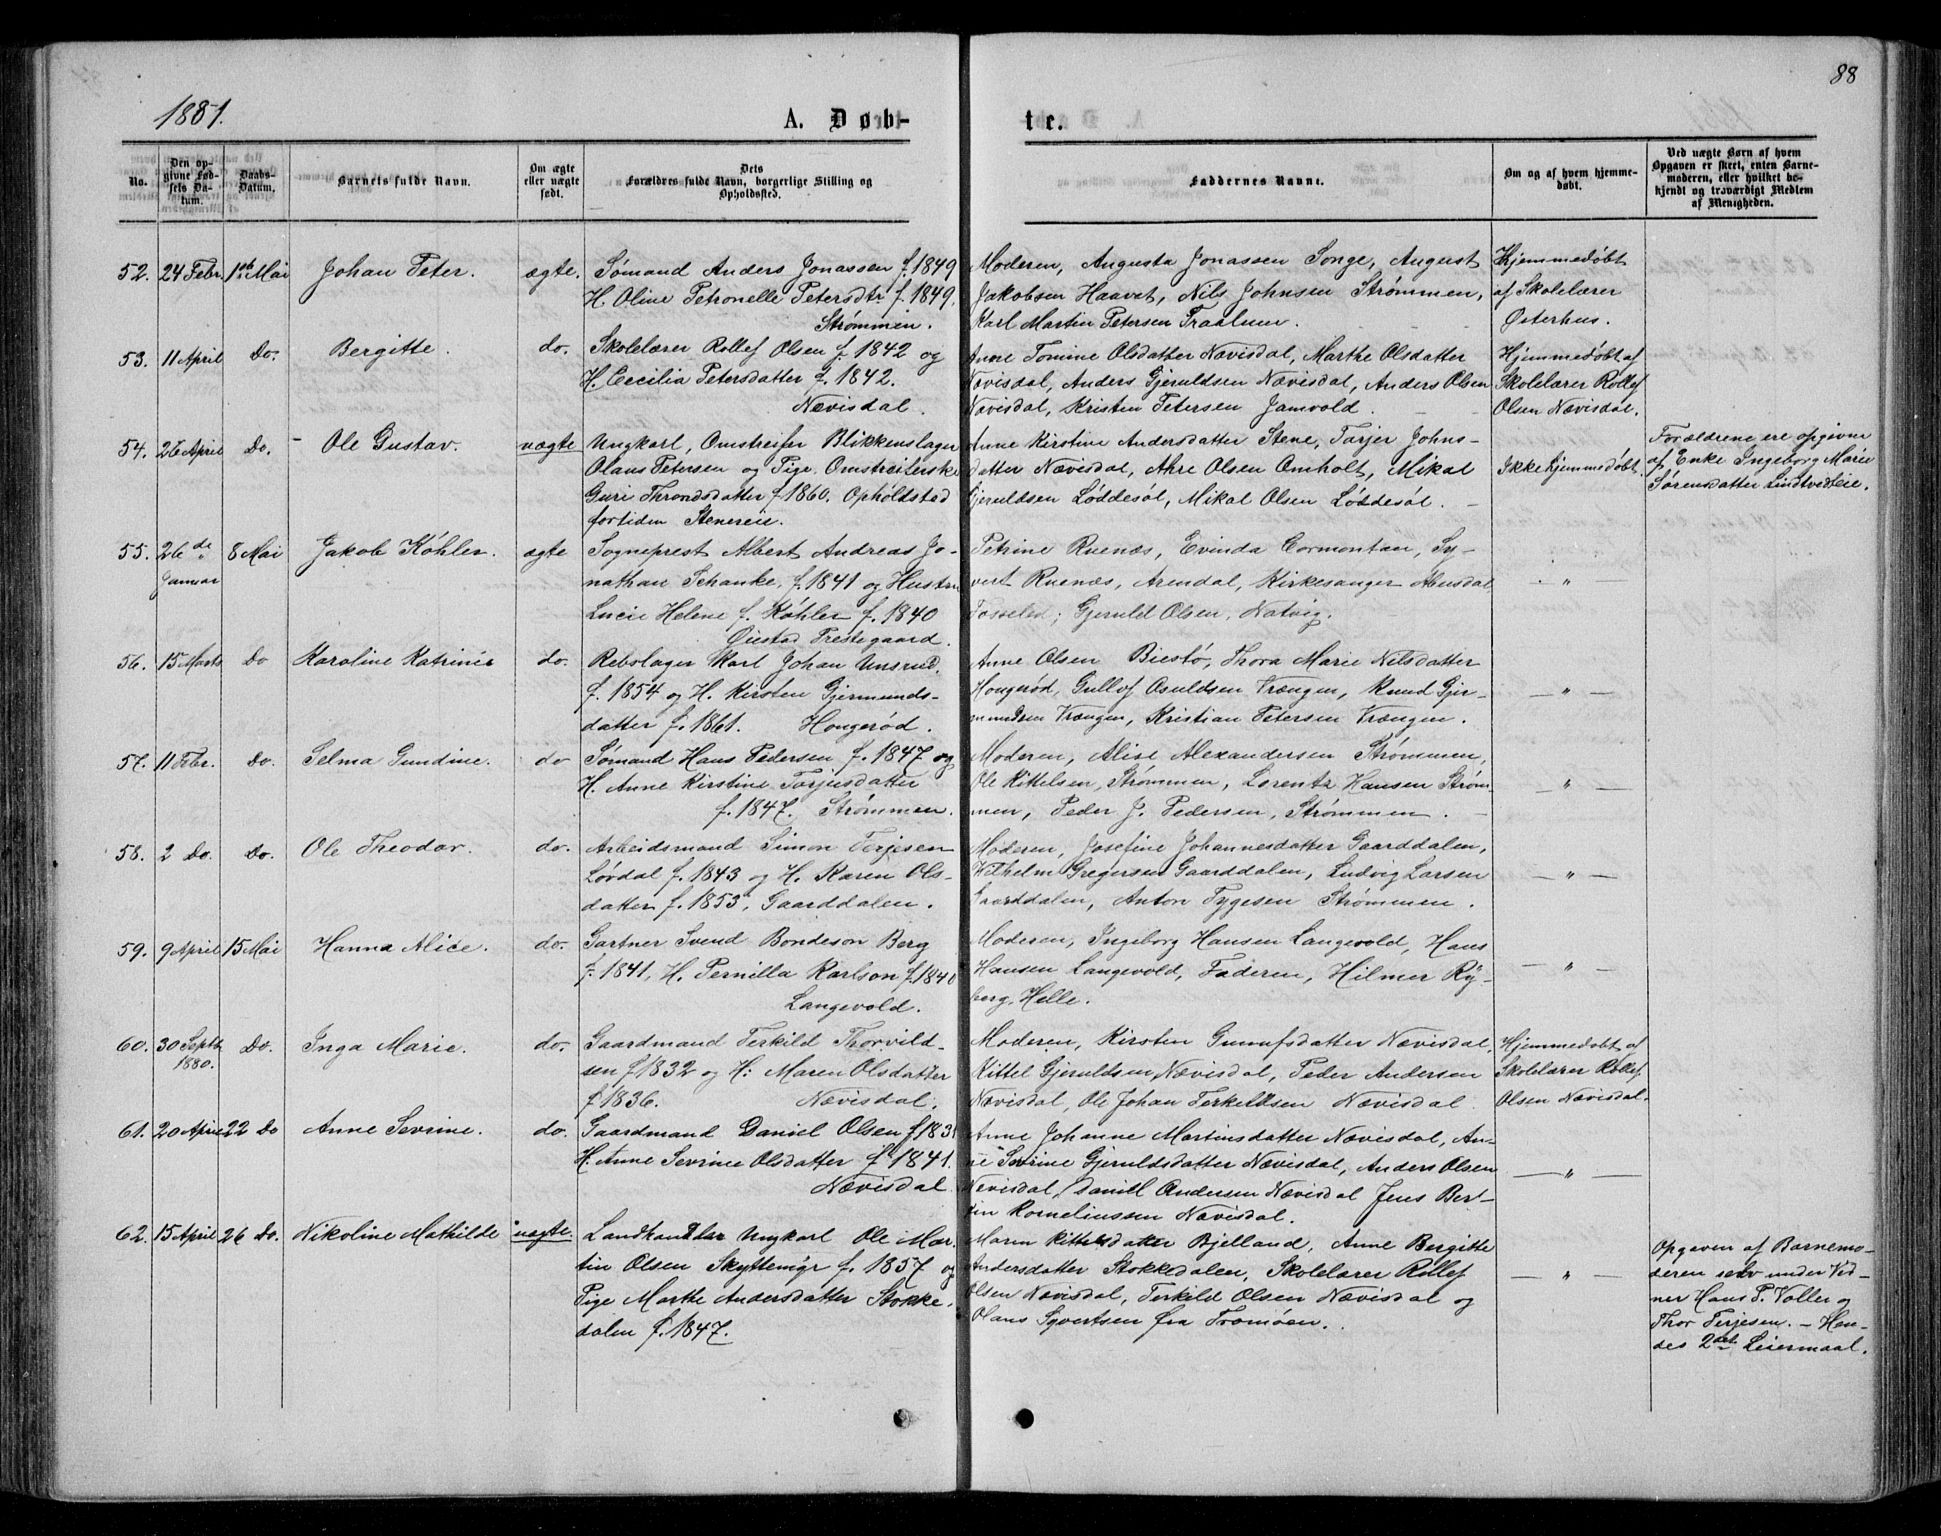 88
1881.
A. Døb-
te.
No.
Den op-
givne Fød-
sels Da-
tum.
Daabs-
Datum.
Barnets fulde Navn.
Om ægte
eller uægte
født.
Dets
Forældres fulde Navn, borgerlige Stilling og
Opholdssted.
Faddernes Navne.
Om og af hvem hjemme-
døbt.
Ved uægte Børn af hvem
Opgaven er skeet, enten Barne-
moderen, eller hvilket be-
kjendt og troværdigt Medlem
af Menigheden.
52. 24 Febr. 1ste Mai Johan Peter. ægte.
Sømand Anders Jonassen f. 1849
H. Oline Petronelle Petersdtr f. 1849.
Strømmen.
Moderen, Augusta Jonassen Songe, August
Jakobsen Haavet, Nils Johnsen Strømmen,
Karl Martin Petersen
Hjemmedøbt
af Skolelærer
Østerhus.
53. 11 April Do. Bergitte. do.
Skolelærer Rollef Olsen f. 1842 og
H. Cecilia Petersdatter f. 1842.
Nævisdal.
Anne Tomine Olsdatter Nævisdal, Marthe Olsdatter
Nævisdal, Anders Gjeruldsen Nævisdal, Anders Olsen
Nævisdal, Kristen Petersen Jamvold.
Hjemmedøbt af
Skolelærer Rollef
Olsen Nævisdal.
54. 26 April Do. Ole Gustav. uægte
Ungkarl, Omstreifer Blikkenslager
Olaus Petersen og Pige, Omstreiferske
Guri Throndsdatter f. 1860. Opholdsted
fortiden Stenereie.
Anne Kirstine Andersdatter Stene, Torjer Johns-
datter Nævisdal, Ahre Olsen Omholt, Mikal
Gjeruldsen Løddesøl, Mikal Olsen Løddesøl.
Ikke hjemmedøbt.
Forældrene ere opgivne
af Enke Ingeborg Marie
Sørensdatter Lindtveideie.
55. 26de Januar 8 Mai Jakob Køhler. ægte
Sogneprest Albert Andreas Jo-
nathan Schanke, f. 1841 og Hustru
Lucie Helene f. Køhler f. 1840
Øiestad Prestegaard.
Petrine Ruenæs, Evinda Cormontan, Sy-
vert Ruenæs, Arendal, Kirkesanger Abusdal
Fosseled; Gjeruld Olsen, Natvig.
"
56. 15 Marts Do Karoline Katrine do.
Rebslager Karl Johan Unsrud.
f. 1854 og H. Kirsten Gjermunds-
datter f. 1861. Hougerød.
Anne Olsen Biestø, Thora Marie Nilsdatter
Hougerød, Gullof Osuldsen Vrængen, Knud Gjer-
mundsen Vrængen, Kristian Petersen Vrængen.
— " —
57. 11 Febr. Do. Selma Gundine. do
Sømand Hans Pedersen f. 1847 og
H. Anne Kirstine Torjusdatter
f. 1847. Strømmen.
Moderen, Alise Alexandersen Strømmen,
Ole Kittelsen, Strømmen, Lorentz Hansen Strøm-
men, Peder J. Pedersen, Strømmen.
— " —
58. 2 Do. Do. Ole Theodor. do.
Arbeidsmand Simon Terjesen
Løvdal f. 1843 og H. Karen Ols-
datter f. 1853, Gaarddalen.
Moderen, Josefine Johannesdatter Gaarddalen,
Vilhelm Gregersen Gaarddalen, Ludvig Larsen
Gaarddalen, Anton Tygesen Strømmen.
— " —
59. 9 April 15 Mai Hanna Alice. do.
Gartner Svend Bondeson Berg
f. 1841, H. Pernilla Karlson f. 1840
Langevold.
Moderen, Ingeborg Hansen Langevold, Hans
Hansen Langevold, Faderen, Hilmer Ry-
berg, Helle.
— " —
60. 30 Septb. 1880. Do. Inga Marie. do.
Gaardmand Terkild Thorvild-
sen f 1832 og H: Maren Olsdatter
f 1836. Nævisdal.
Moderen, Kirsten Gunufsdatter Nævisdal,
Kittel Gjeruldsen Nævisdal, Peder Andersen
Nævisdal, Ole Johan Terkeldsen Nævisdal
Hjemmedøbt af
Skolelærer Rollef
Olsen Nævisdal.
61. 20 April 22 Do Anne Sevrine. do.
Gaardmand Daniel Olsen f. 1831
H. Anne Sevrine Olsdatter f. 1841.
Nævisdal
Anne Johanne Martinsdatter Nævisdal, An-
ne Sevrine Gjeruldsdatter Nævisdal, Anders Olsen
Nævisdal, Daniel Andersen Nævisdal Jens Ber-
tin Korneliussen Nævisdal.
— " —
62. 15 April 26 Do. Nikoline Mathilde uægte.
Landhandler Ungkarl Ole Mar-
tin Olsen Skyttemyr f. 1857 og
Pige Marthe Andersdatter Stokke-
dalen f. 1847.
Maren Kittelsdatter Bjelland, Anne Bergitte
Andersdatter Stokkedalen, Skolelærer Rollef
Olsen Nævisdal, Terkild Olsen Nævisdal og
Olaus Syvertsen fra Tromøen.
— " —
Opgaven af Barnemo-
deren selv under Vid-
ner Hans P. Voller og
Thor Terjesen. – Hen-
des 2det Leiermaal.